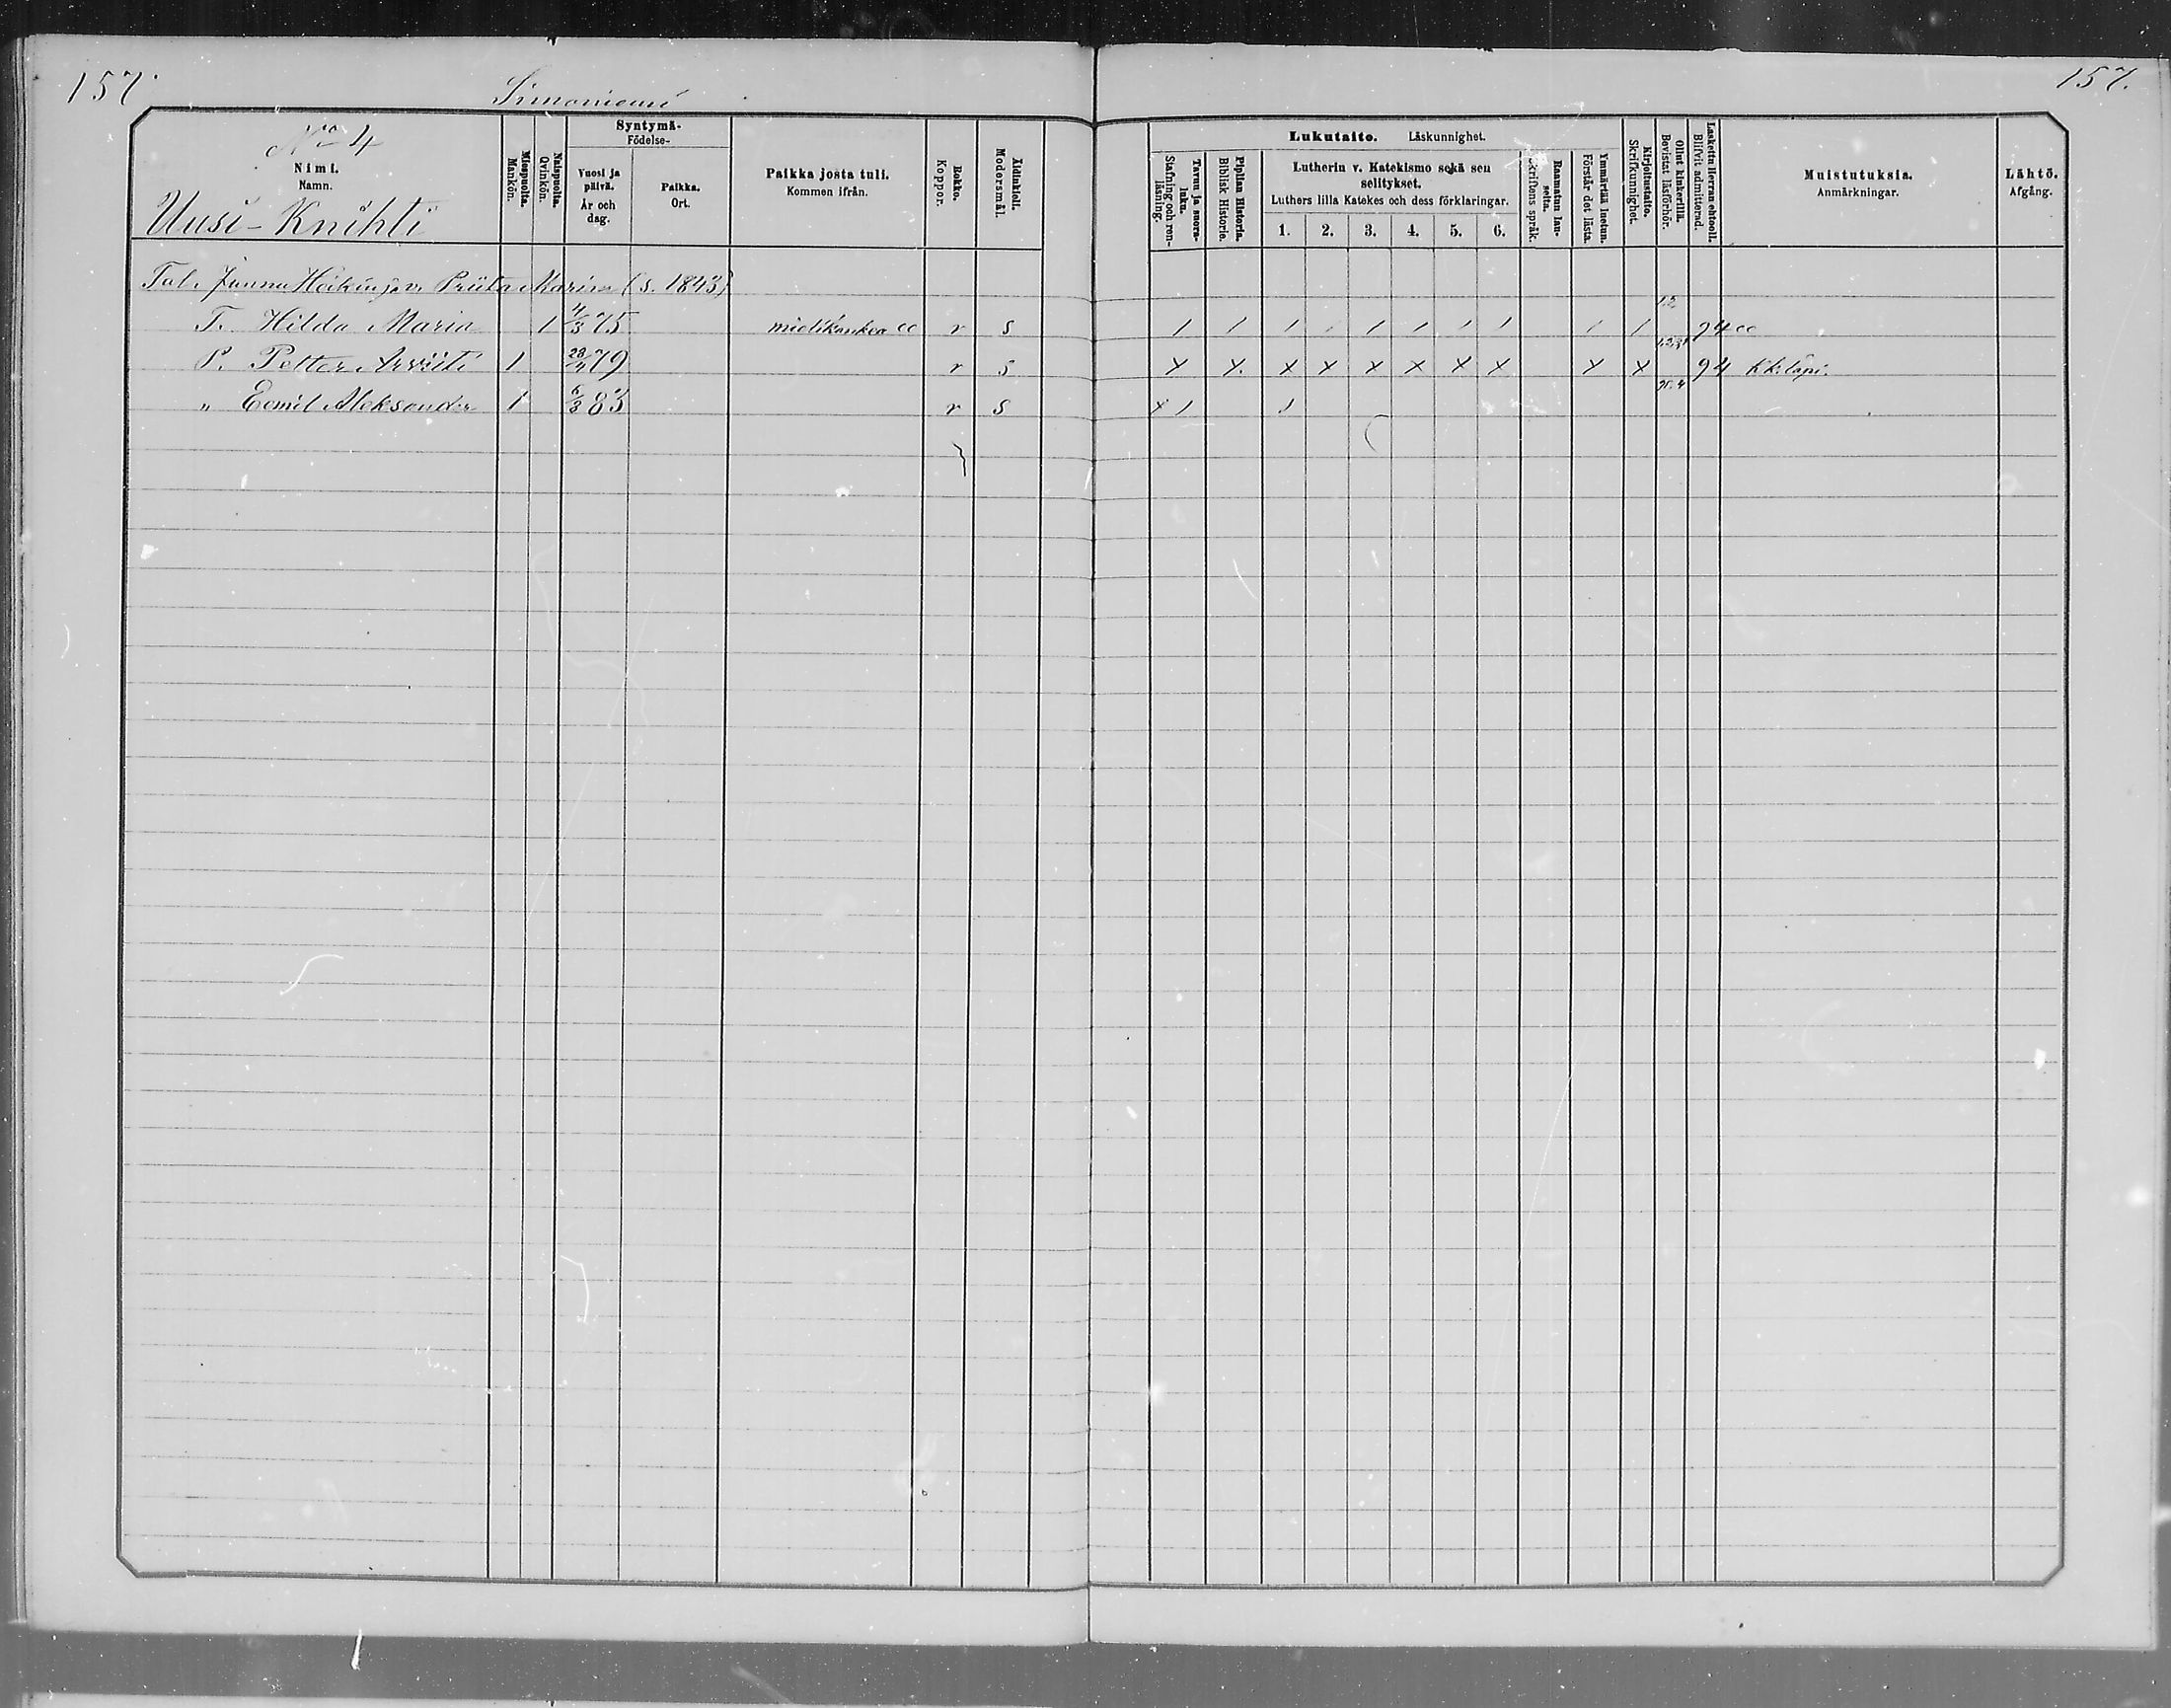 157.
Simoniemi
157.
No 4
Nimi.
Namn.
Uusi-Knihti
Miespuolta.
Mankön.
Naispuolta.
Qvinkön.
Syntymä-
Födelse-
Vuosi ja päivä.
År och dag.
Paikka.
Ort.
Paikka josta tuli.
Kommen ifrån.
Rokko.
Koppor.
Äidinkieli.
Modersmål.
Lukutaito. Läskunnighet.
Tavuu ja suora-luku.
Stafning och ren-läsning.
Piplian Historia.
Biblisk Historie.
Lutherin v. Katekismo sekä sen
selitykset.
Luthers lilla Katekes och dess förklaringar.
1. 2. 3. 4. 5. 6.
Raamatun lau-seita.
Skriftens språk.
Ymmärtää luetun.
Förstår det lästa.
Kirjoitustaito.
Skrifkunnighet.
Ollut kinkerillä.
Bevistat läsförhör.
Laskettu Herran ehtooll.
Blifvit admitterad.
Muistutuksia.
Anmärkningar.
Lähtö.
Afgång.
Tal. Maria (s. 1843)
T. Hilda Maria 1 4/3 75 r s / / / / / / / / / / 94
P. Petter 1 79 r s x x. x x x x x x x x 94
" Eemil Aleksander 1 6/3 83 r s x 1